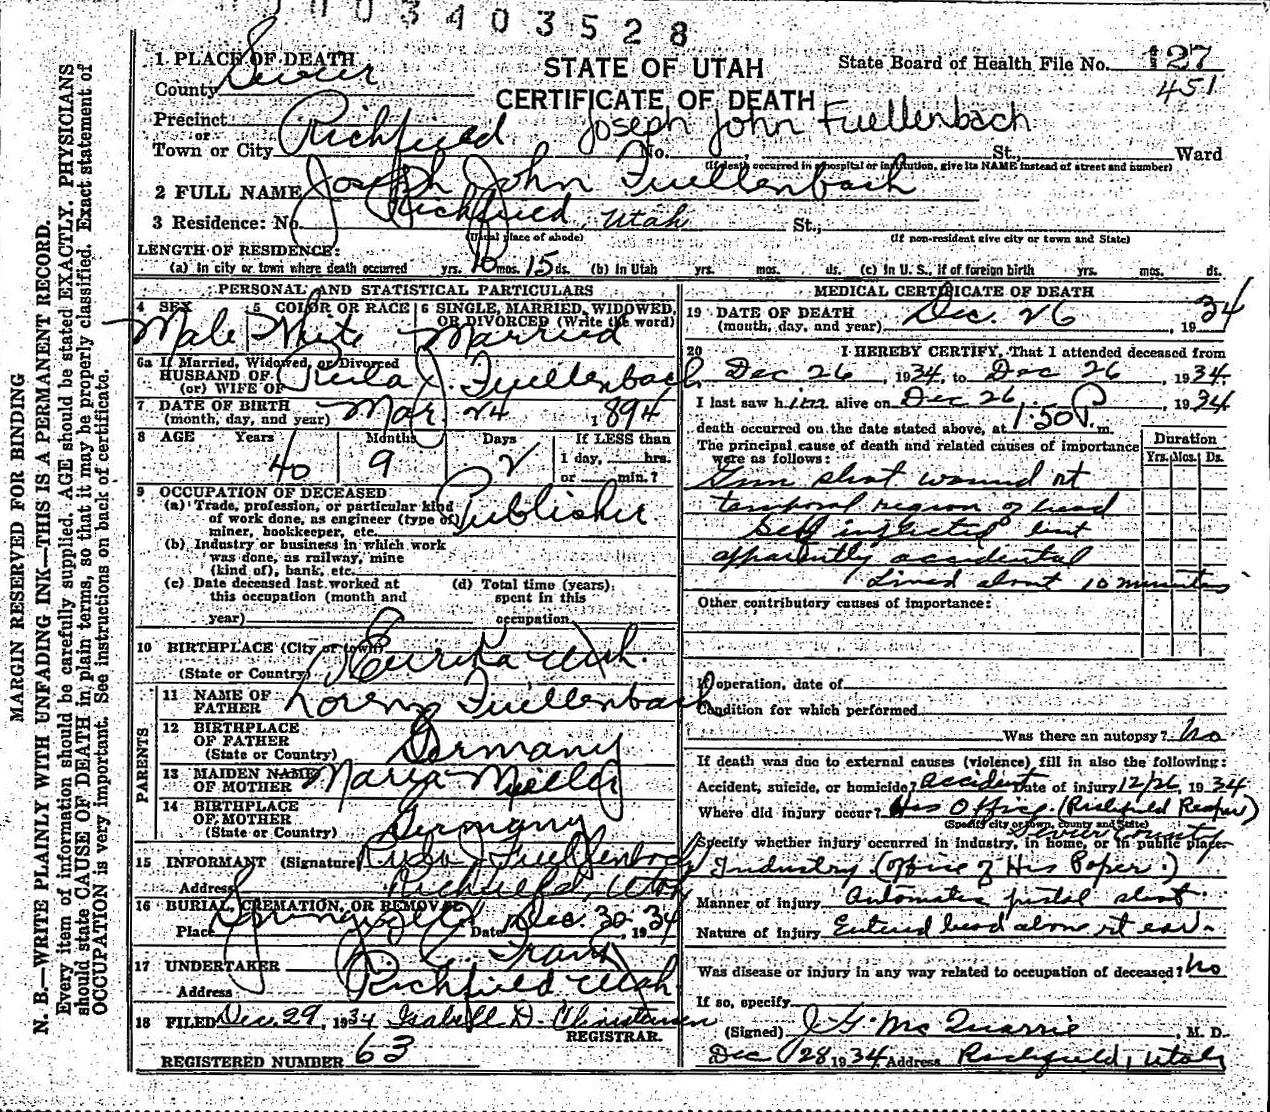 0 0 3 4 0 3 5 2 8
STATE OF UTAH
CERTIFICATE OF DEATH
State Board of Health File No. 127
451
1 PLACE OF DEATH
County Sevier
Precinct
or
Town or City Richfield
Joseph John Fuellenbach
No. St., Ward
(If death occurred in a hospital or institution, give its NAME instead of street and number)
2 FULL NAME Joseph John Fuellenbach
3 Residence: No. Richfield, Utah St.,
(Usual place of abode) (If non-resident give city or town and State)
LENGTH OF RESIDENCE:
(a) in city or town where death occurred yrs. 10 mos. 15 ds. (b) In Utah yrs. mos. ds. (c) In U. S., if of foreign birth yrs. mos. ds.
PERSONAL AND STATISTICAL PARTICULARS
4 SEX Male
5 COLOR OR RACE White
6 SINGLE, MARRIED, WIDOWED, OR DIVORCED (Write the word) Married
6a If Married, Widowed, or Divorced
HUSBAND OF
(or) WIFE OF J. Fuellenbach
7 DATE OF BIRTH
(month, day, and year) Mar 24 1894
8 AGE Years Months Days If LESS than
40 9 2 1 day, hrs.
or min.?
9 OCCUPATION OF DECEASED
(a) Trade, profession, or particular kind
of work done, as engineer (type of)
miner, bookkeeper, etc. Publisher
(b) Industry or business in which work
was done, as railway, mine
(kind of), bank, etc.
(c) Date deceased last worked at
this occupation (month and
year)
(d) Total time (years).
spent in this
occupation
10 BIRTHPLACE (City or town) Eureka Utah.
(State or Country)
PARENTS
11 NAME OF
FATHER Lorenz Fuellenbach
12 BIRTHPLACE
OF FATHER
(State or Country) Germany
13 MAIDEN NAME
OF MOTHER Maria Mueller
14 BIRTHPLACE
OF MOTHER
(State or Country) Germany
15 INFORMANT (Signature) J. Fuellenbach
Address Richfield, Utah
16 BURIAL, CREMATION, OR REMOVAL
Place Springville Date Dec. 30, 1934
17 UNDERTAKER
Address Richfield Utah
18 FILED Dec. 29, 1934 Isabell D. Christensen
REGISTRAR.
REGISTERED NUMBER 63
MEDICAL CERTIFICATE OF DEATH
19 DATE OF DEATH
(month, day, and year) Dec. 26, 1934
20 I HEREBY CERTIFY, That I attended deceased from
Dec 26, 1934, to Dec 26, 1934.
I last saw him alive on Dec 26, 1934
death occurred on the date stated above, at 1:50 P. m.
The principal cause of death and related causes of importance
were as follows:
Duration
Yrs. Mos. Ds.
Gun shot wound rt
temporal region of head
Self inflicted but
apparently accidental
Lived about 10 minutes
Other contributory causes of importance:
If operation, date of
Condition for which performed
Was there an autopsy? No
If death was due to external causes (violence) fill in also the following:
Accident, suicide, or homicide? accident Date of injury 12/26, 1934
Where did injury occur? His Office (Richfield Reaper)
(Specify city or town, county and State) Sevier County
Specify whether injury occurred in industry, in home, or in public place.
Industry (Office of His Paper.)
Manner of injury Automatic pistol shot.
Nature of injury Entered head above rt ear.
Was disease or injury in any way related to occupation of deceased? No
If so, specify
(Signed) J. G. McQuarrie M. D.
Dec 28 1934 Address Richfield, Utah
MARGIN RESERVED FOR BINDING
N. B.—WRITE PLAINLY WITH UNFADING INK—THIS IS A PERMANENT RECORD.
Every item of information should be carefully supplied. AGE should be stated EXACTLY. PHYSICIANS
should state CAUSE OF DEATH in plain terms, so that it may be properly classified. Exact statement of
OCCUPATION is very important. See instructions on back of certificate.